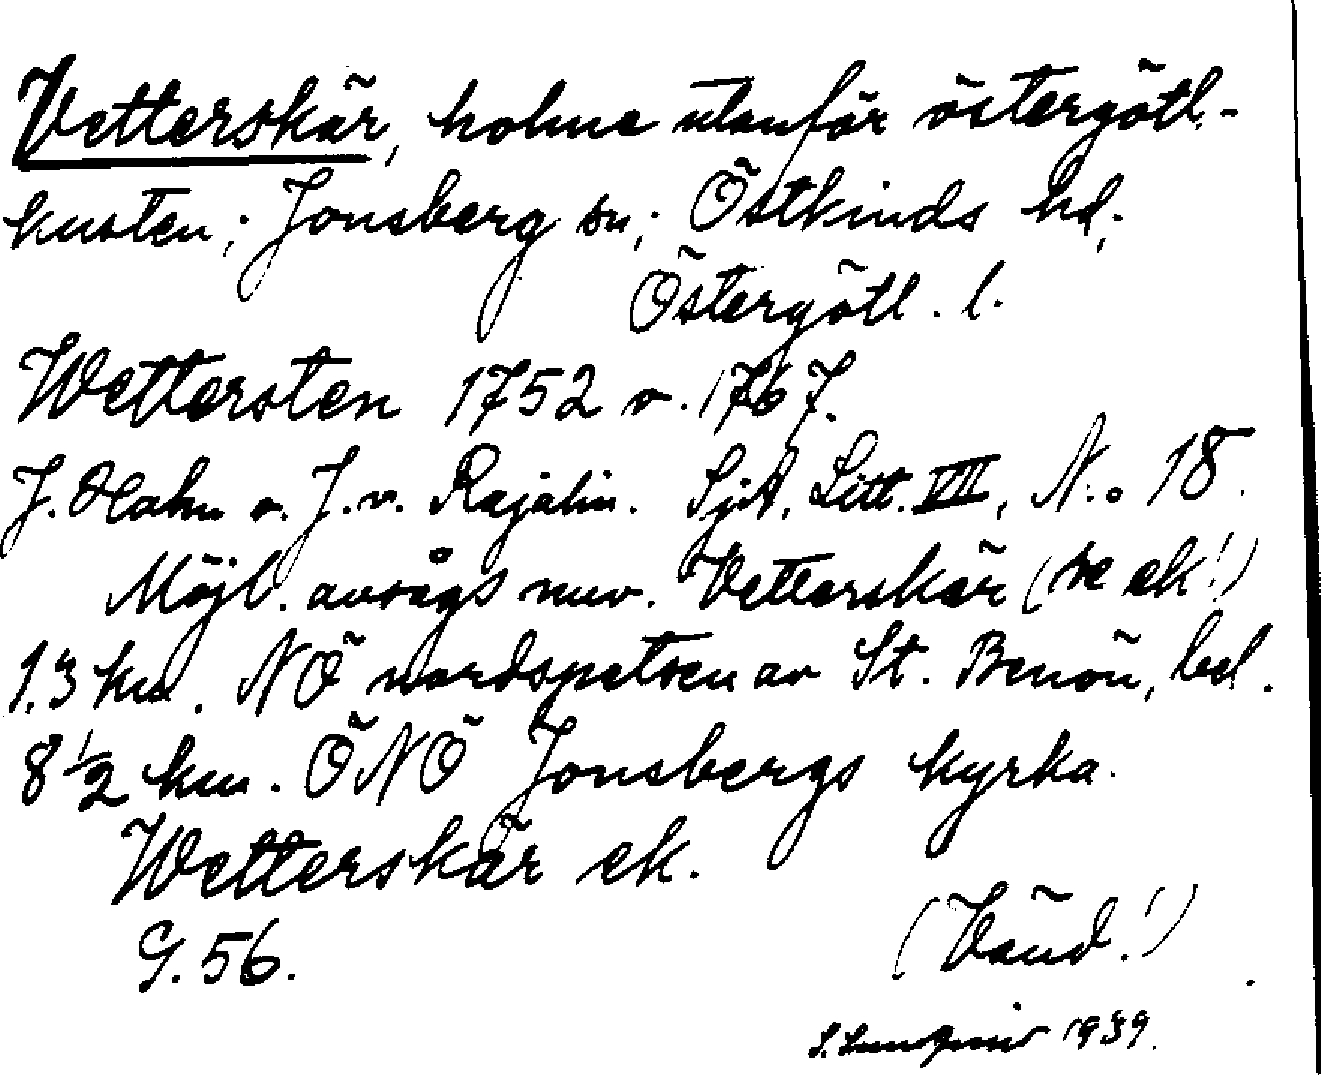 Vetterskär, holme utanför östergötl.-
kusten; Jonsberg sn; Östkinds hd;
Östergötl. l.
Wettersten 1752 o. 1767.
J. Hahn o. J. v. Rajalin. SjA, Litt. VIII, N:o 18.
Möjl. avsågs nuv. Vetterskär (se ek!)
1.3 km. NÖ nordspetsen av St. Benön, bel.
8 1/2 km. ÖNÖ Jonsbergs kyrka.
Wetterskär ek.
G. 56.
(Vänd!)
1939.